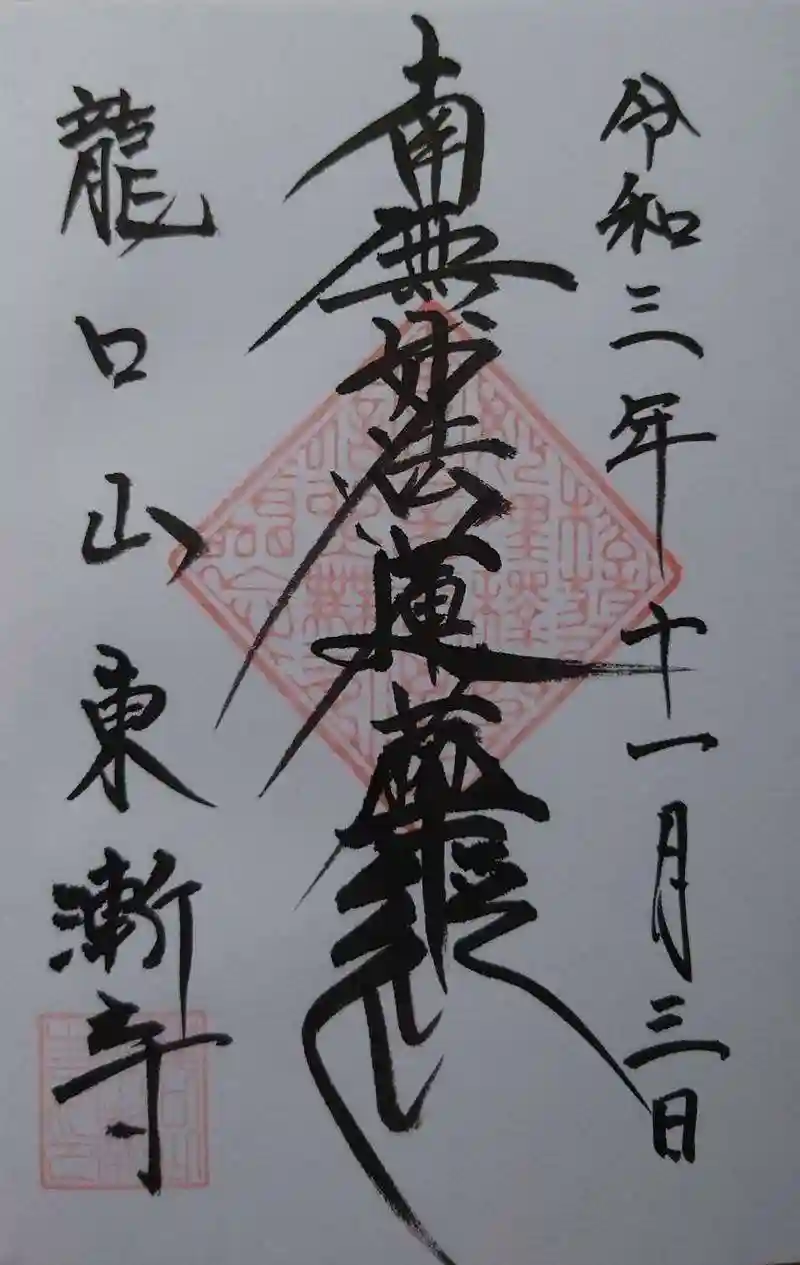 令和三年十一月三日
南無妙法蓮華経
龍口山東漸寺